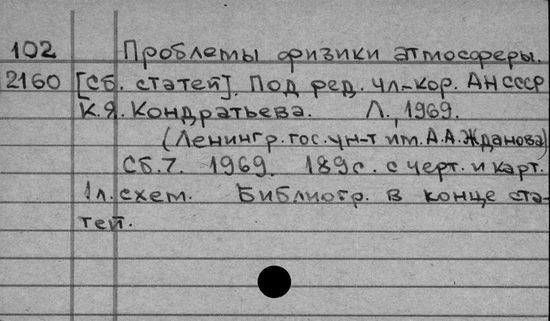 102 Проблемы физики атмосферы.
2160 [Сб. статей]. Под ред. чл-кор. АН СССР
К.Я. Кондратьева. Л., 1969.
(Ленингр. гос. ун-т им. А.А. Жданова)
Сб. 7. 1969. 189с. с черт. и карт.
1 л. схем. Библиогр. в конце ста-
тей.